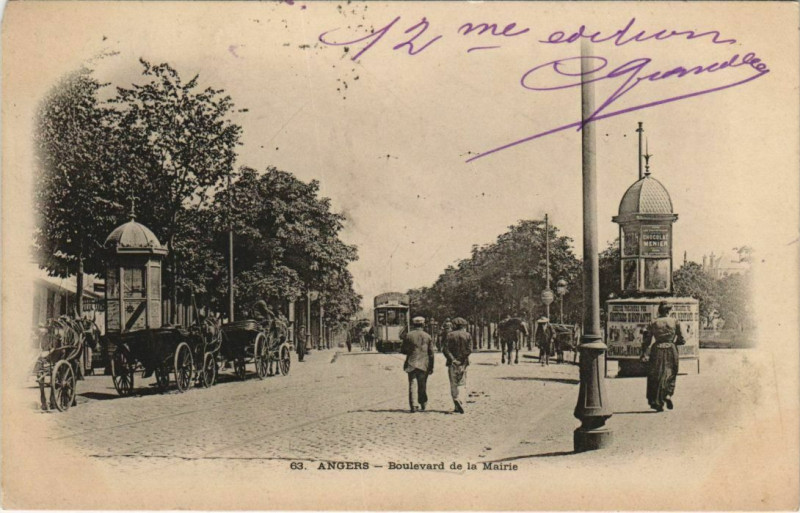 12me edition
CHOCOLAT
MENIER
63. ANGERS — Boulevard de la Mairie